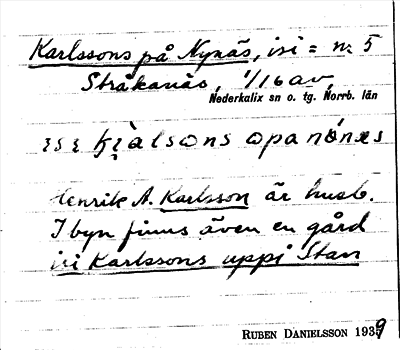 Karlssons på Nynäs, isi = nr 5
Stråkanäs, 1/16 av,
Nederkalix sn o. tg. Norrb. län
opanónæs
Henrik A. Karlsson är husb.
I byn finns även en gård
isi Karlssons uppi Stan
RUBEN DANIELSSON 1939